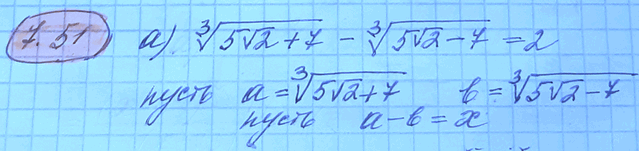 7.51 а) ∛(5√2+7) - ∛(5√2-7) = 2
пусть a = ∛(5√2+7) b = ∛(5√2-7)
пусть a-b = x